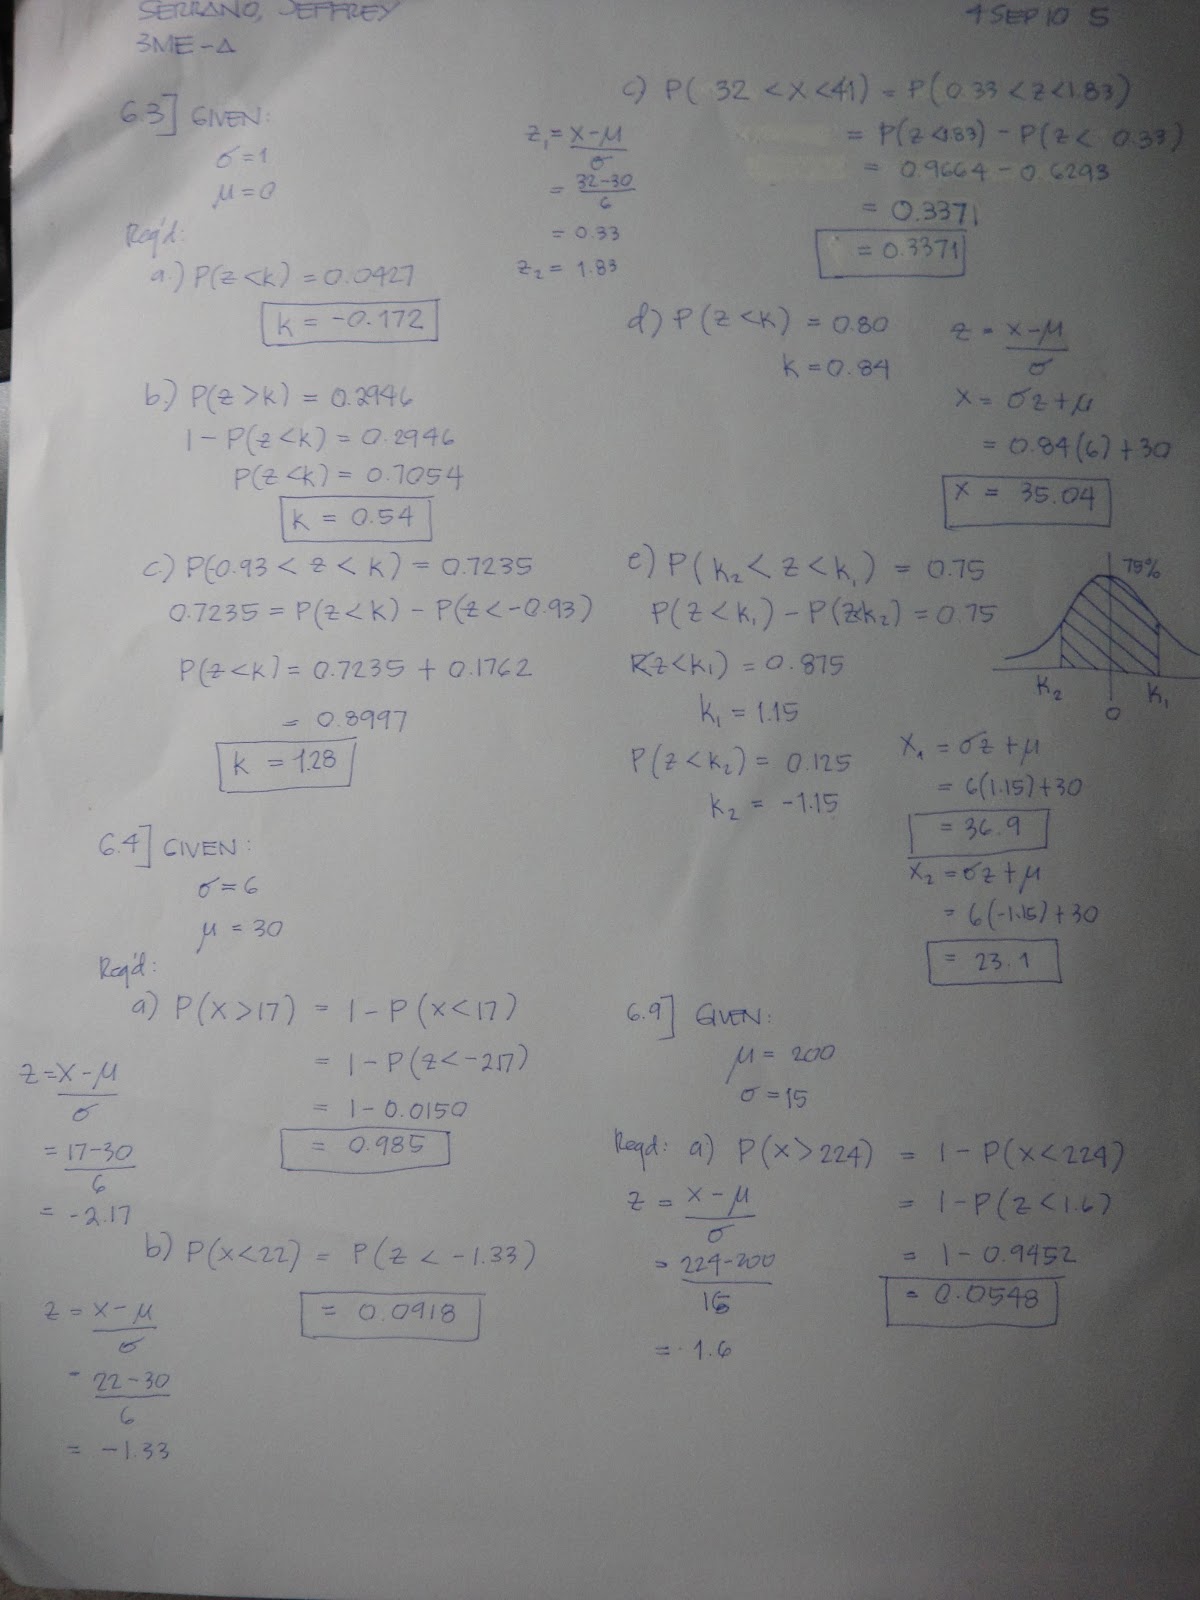 SERRANO, JEFFREY
3ME-A
4 SEP 10 5
6.3] GIVEN:
σ=1
μ=0
Req'd:
a.) P(z<k) = 0.0427
k = -0.172
b.) P(z>k) = 0.2946
1-P(z<k) = 0.2946
P(z<k) = 0.7054
k = 0.54
c.) P(-0.93 < z < k) = 0.7235
0.7235 = P(z<k) - P(z<-0.93)
P(z<k) = 0.7235 + 0.1762
= 0.8997
k = 1.28
6.4] GIVEN:
σ=6
μ = 30
Req'd:
a) P(x>17) = 1-P(x<17)
= 1-P(z<-2.17)
= 1-0.0150
= 0.985
z=x-μ
σ
= 17-30
6
= -2.17
b) P(x<22) = P(z < -1.33)
= 0.0918
z = x-μ
σ
= 22-30
6
= -1.33
c) P( 32 <x<41) = P(0.33<z<1.83)
= P(z<1.83) - P(z< 0.33)
= 0.9664 - 0.6293
= 0.3371
= 0.3371
z₁= x-μ
σ
= 32-30
6
= 0.33
z₂ = 1.83
d) P(z<k) = 0.80
k = 0.84
z = x-μ
σ
x = σz+μ
= 0.84(6)+30
x = 35.04
e) P(k₂<z<k₁) = 0.75
P(z<k₁) - P(z<k₂) = 0.75
P(z<k₁) = 0.875
k₁ = 1.15
P(z<k₂) = 0.125
k₂ = -1.15
75%
k₂
0
k₁
x₁ = σz+μ
= 6(1.15)+30
= 36.9
x₂ = σz+μ
= 6(-1.15)+30
= 23.1
6.9] GIVEN:
μ = 200
σ = 15
Reqd: a) P(x>224) = 1-P(x<224)
= 1-P(z<1.6)
= 1-0.9452
= 0.0548
z = x-μ
σ
= 224-200
15
= 1.6